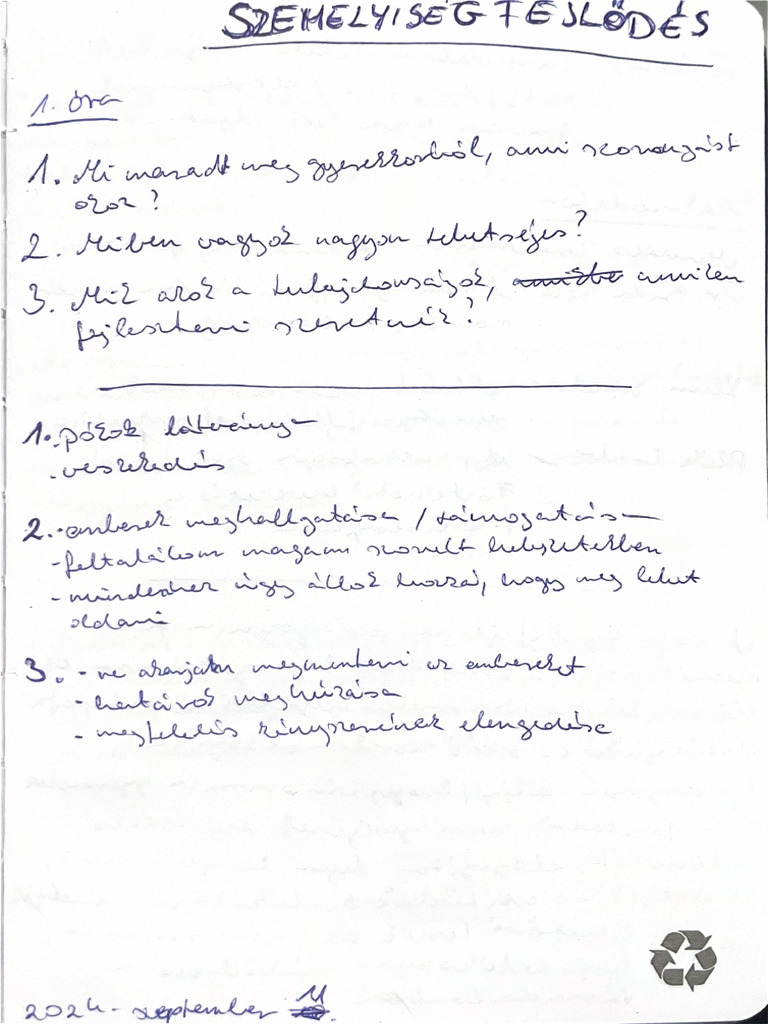 SZEMÉLYISÉGFEJLŐDÉS
1. óra
1. Mi maradt meg gyerekkoról, ami szorongást
okoz?
2. Miben vagyok nagyon tehetséges?
3. Mik azok a tulajdonságok, amiben
fejleszteni szeretnék?
1. pókok látványa
- veszekedés
2. - emberek meghallgatása / támogatása
- feltalálom magam szorult helyzetekben
- mindenhez úgy állok hozzá, hogy meg lehet
oldani
3. - ne akarjam megmenteni az embereket
- határok meghúzása
- megfelelés kényszerének elengedése
2024. szeptember 11.